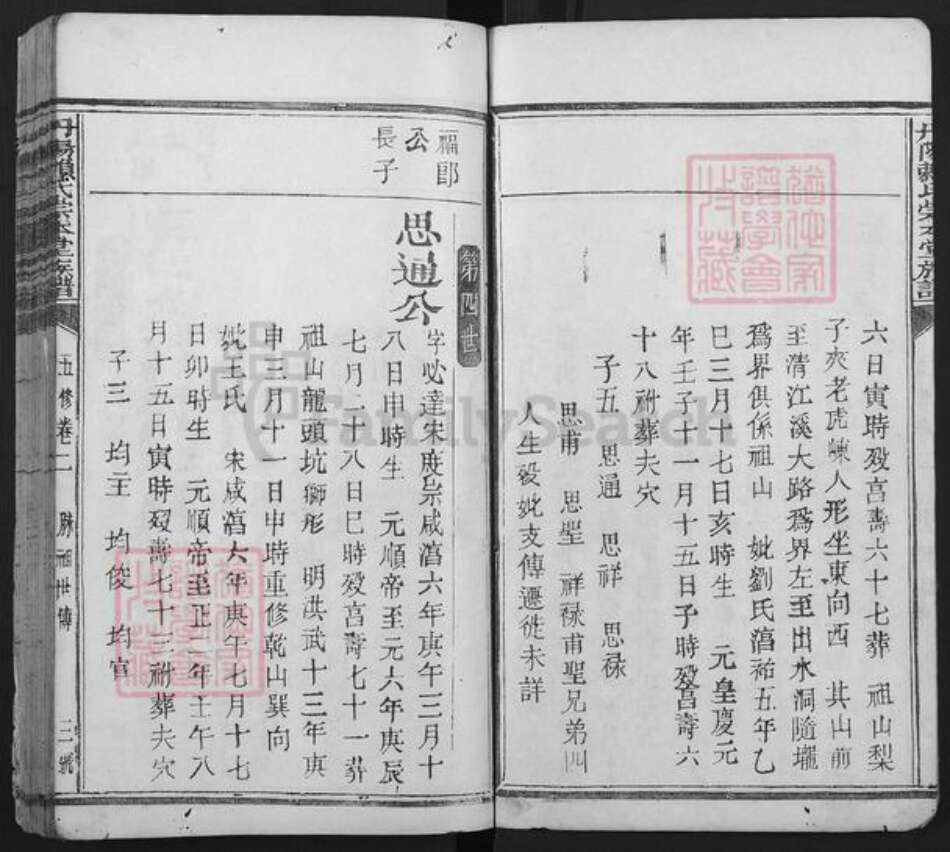 六日寅時歿亯壽六十七葬 祖山梨
子夾老虎崠人形坐東向西 其山前
至清江溪大路爲界左至出水洞隨壠
爲界俱係祖山 妣劉氏湻祐五年乙
巳三月十七日亥時生 元皇慶元
年壬子十一月十五日子時歿亯壽六
十八祔葬夫穴
子五 思通 思祥 思禄
思甫 思聖 祥禄甫聖兄弟四
人生歿妣支傳遷徙未詳
第四世
福郎
公
長子
思通公
字必達宋度宗咸湻六年庚午三月十
八日申時生 元順帝至元六年庚辰
七月二十八日巳時歿亯壽七十一葬
祖山龍頭坑獅形 明洪武十三年庚
申三月十一日申時重修乾山巽向
妣王氏 宋咸湻六年庚午七月十七
日卯時生 元順帝至正二年壬午八
月十五日寅時歿壽七十三祔葬夫穴
子三 均主 均俊 均官
五修卷二
世傳
三號
FamilySearch